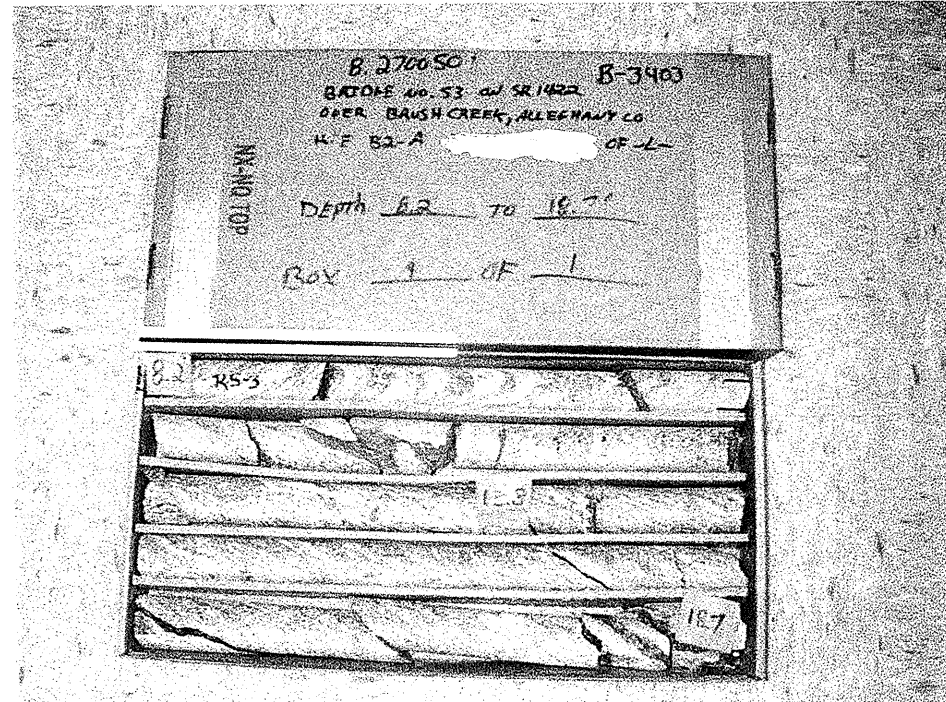 8.270050
B-3403
BRIDGE NO. 53 ON SR 1422
OVER BRUSH CREEK, ALLEGHANY CO
B2-A OF -L-
NX-NO TOP
DEPTH 8.2 TO 18.7'
BOX 1 OF 1
8.2 RS-3
18.7